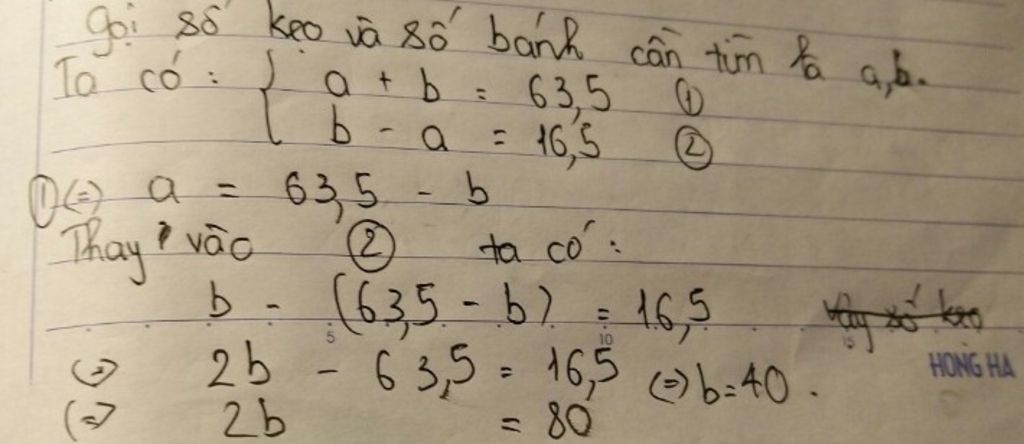 Gọi số kẹo và số bánh cần tìm là a,b.
Ta có : { a + b = 63,5 ①
b - a = 16,5 ②
① (=) a = 63,5 - b
Thay vào ② ta có :
b - (63,5 - b) = 16,5
Vậy số kẹo
5 10 15
HONG HA
(=) 2b - 63,5 = 16,5 (=) b = 40 .
(=) 2b = 80